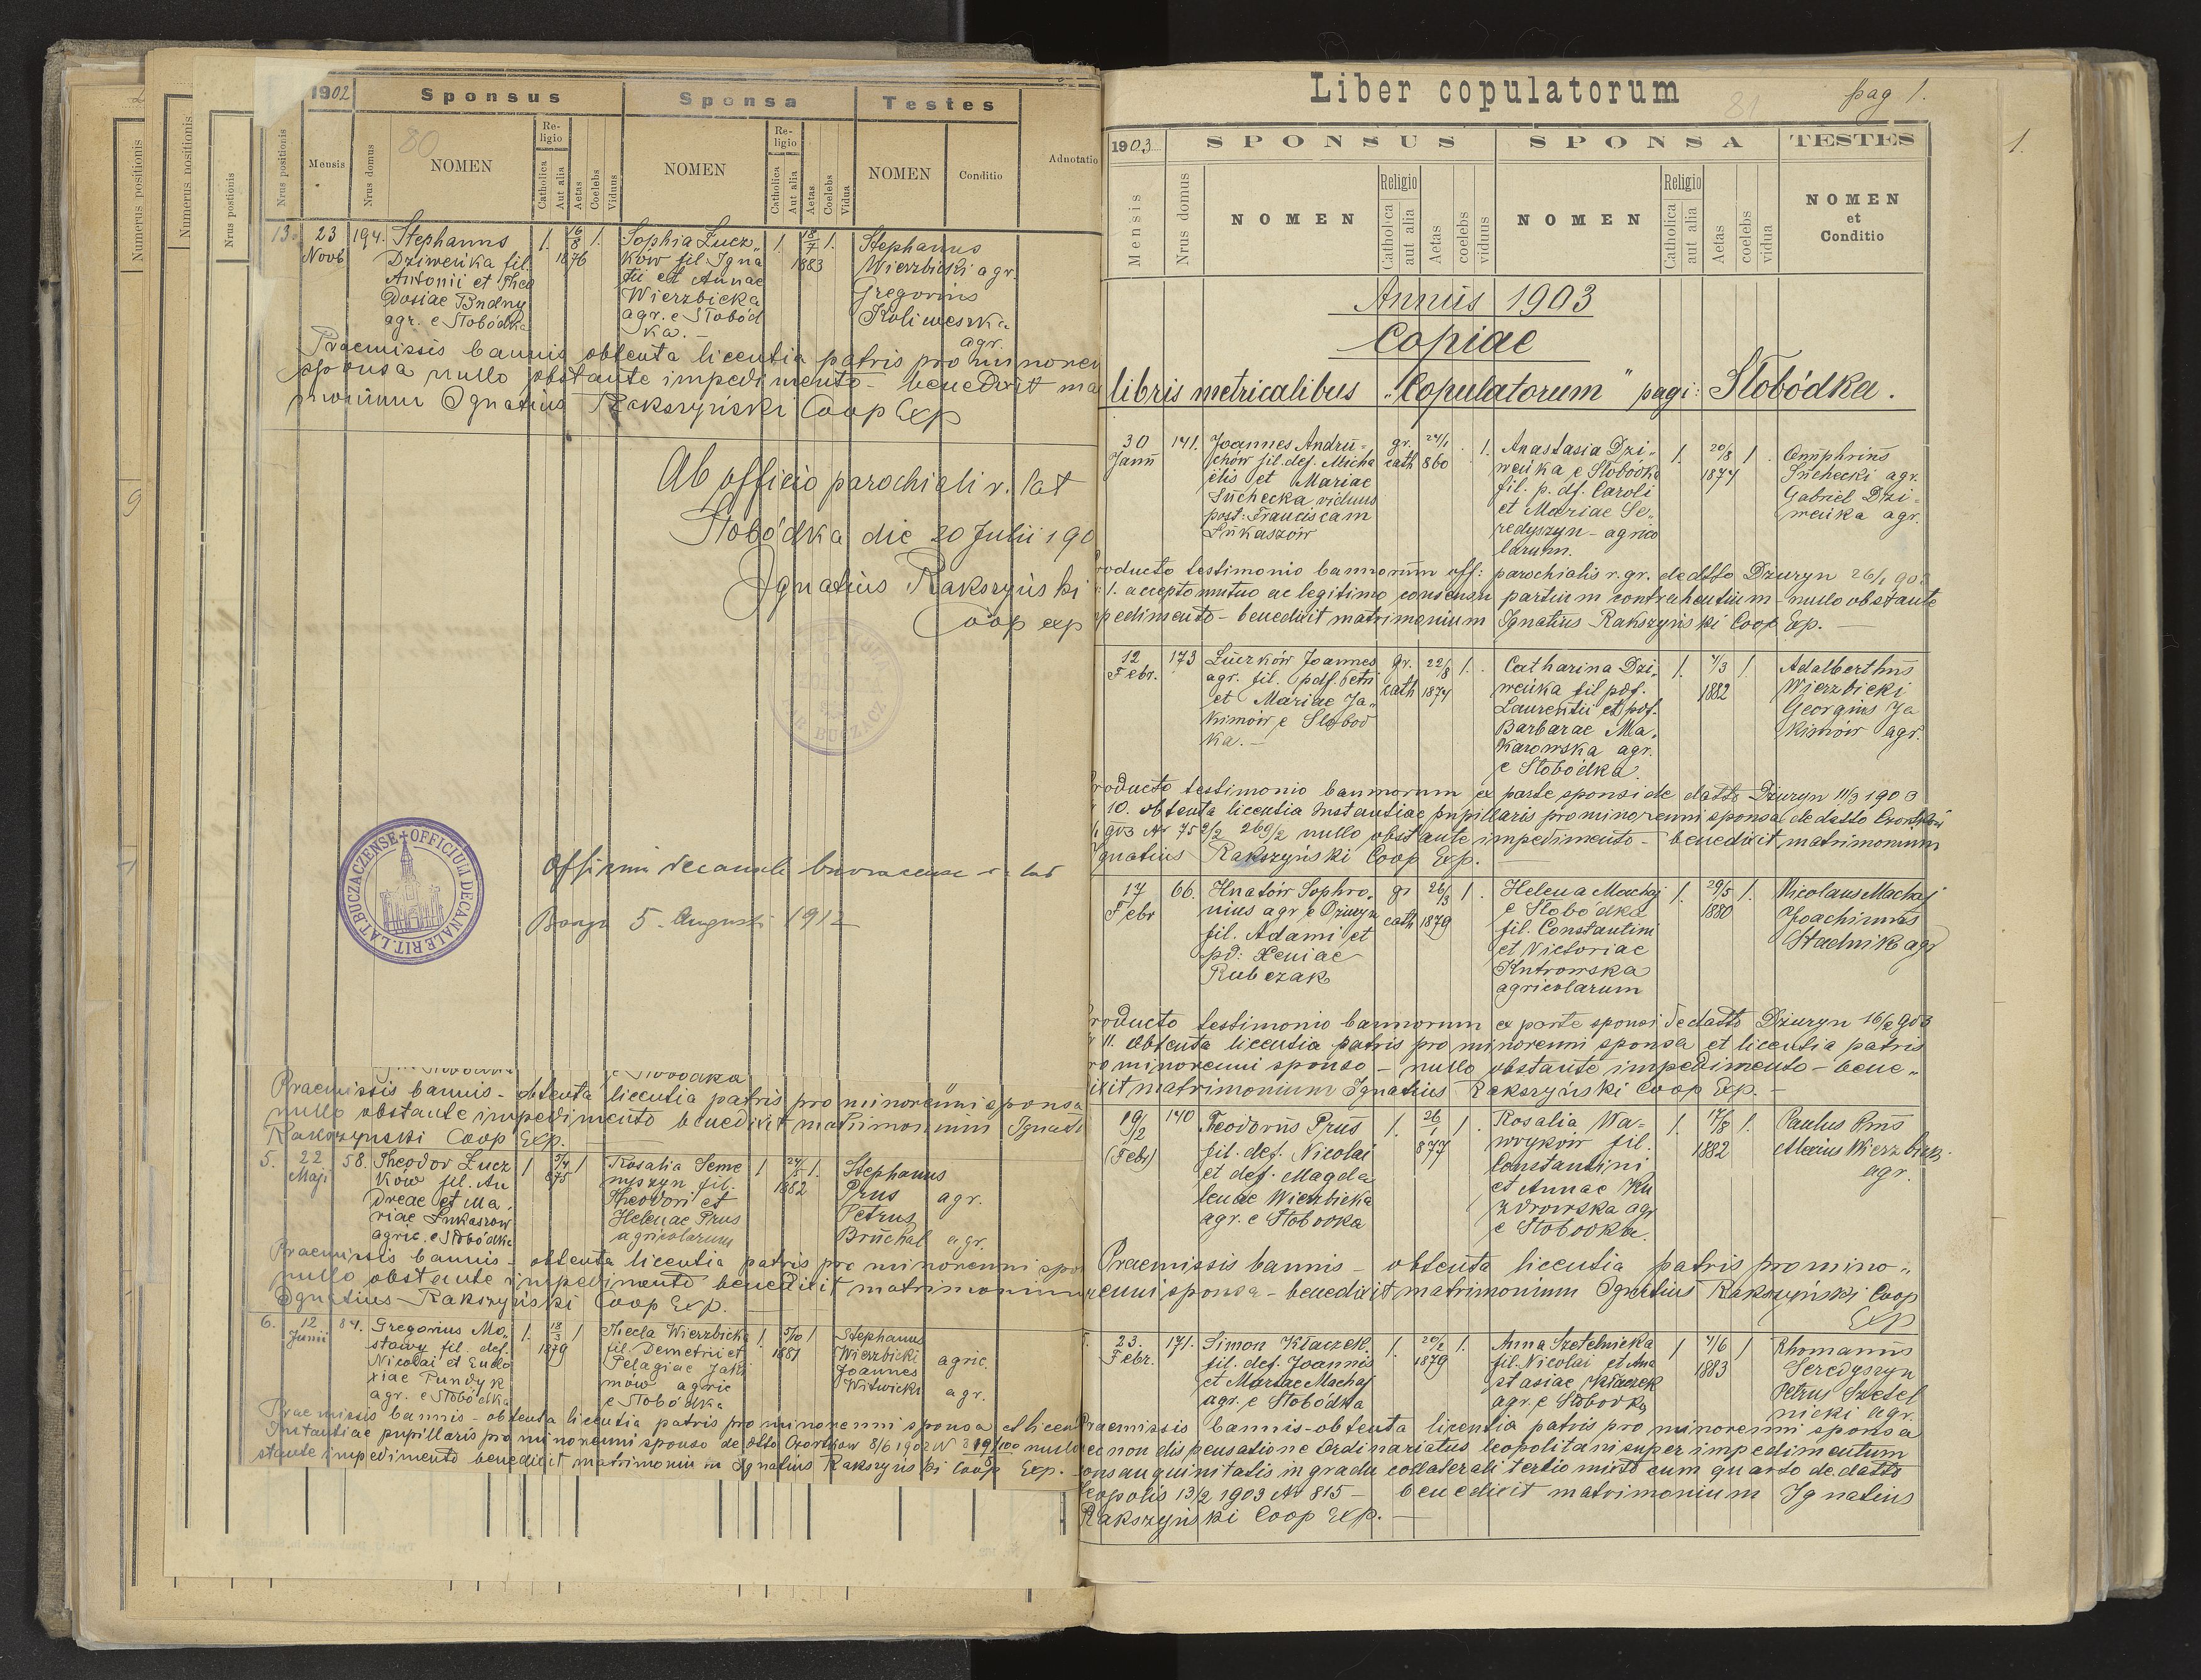 1902
Sponsus
Sponsa
Testes
80
Numerus positionis
Numerus positionis
Nrus positionis
Nrus positionis
Mensis
Nrus domus
NOMEN
Religio
Catholica
Aut alia
Aetas
Coelebs
Viduus
NOMEN
Religio
Catholica
Aut alia
Aetas
Coelebs
Vidua
NOMEN
Conditio
Adnotatio
13. 23 Novb 194. 1. 16/8 1876 1. 1. 18/7 1883 1.
Stephanus
Dziweńka fil.
Antonii et Theo
dosiae Budny
agr. e Słobódka
Sophia Łucz„
ków fil Igna
tii et Annae
Wierzbicka
agr. e Słobód
ka.
Stephanus
Wierzbicki agr.
Gregorius
agr.
Praemissis bannis obtenta licentia patris pro minoren
sponsa nullo obstante impedimento - benedixit ma
monium Ignatius Rakszyński Coop Exp
Ab officio parochiali r. lat
Słobódka die 20 Julii 190
Ignatius Rakszyński
Coop exp
BUCZACZ
OFFICIUM DECANALE RIT. LAT. BUCZACZENSE
Officium decanale
5. Augusti 1912
e Słobódka
Praemissis bannis - obtenta licentia patris pro minorenni sponsa
nullo obstante impedimento benedixit matrimonium Ignati
Rakszyński Coop Exp.
5. 22 Maji 58. 1 875 1 1 24/5 1882 1.
Theodor Łucz
ków fil. An
dreae et Ma„
riae Łukaszow
agric. e Słobódka
Rosalia Seme
nyszyn fil.
Theodori et
Helenae Prus
agricolarum
Stephanus
Prus agr.
Petrus
Bruchal agr.
Praemissis bannis - obtenta licentia patris pro minorenni spon
nullo obstante impedimento benedixit matrimonium
Ignatius Rakszyński Coop Exp.
6. 12 Junii 84. 1. 18/3 1879 1 1. 1881 1
Gregorius Mo„
stowy fil. def.
Nicolai et Eudo
xiae Pundyk
agr. e Słobódka
Thecla Wierzbicka
fil. Demetrii et
Pelagiae Jaki
mów agric
e Słobódka
Stephanus
Wierzbicki agric.
Joannes
Witwicki agr.
Praemissis bannis - obtenta licentia patris pro minorenni sponsa et licen
Instantiae pupillaris pro minorenni sponso de dtto Czortkow 8/6 1902 N
stante impedimento benedixit matrimonium Ignatius Rakszyński Coop Exp.
Liber copulatorum
81
pag 1.
1.
1903
SPONSUS
SPONSA
TESTES
Mensis
Nrus domus
NOMEN
Religio
Catholica
aut alia
Aetas
coelebs
viduus
NOMEN
Religio
Catholica
aut alia
Aetas
coelebs
vidua
NOMEN
et
Conditio
Annus 1903
Copiae
libris metricalibus „Copulatorum" pagi: Słobódka.
30 Janu 141. gr. cath 24/1 860 1. 1. 20/8 1877 1
Joannes Andru„
chów fil. def. Micha
elis et Mariae
Suchecka viduus
post: Franciscam
Łukaszów
Anastasia Dzi„
weńka e Słobódka
fil. p. df. Caroli
et Mariae Se„
redyszyn - agrico
larum.
Onuphrius
Suchecki agr.
Gabriel Dzi„
weńka agr.
roducto testimonio bannorum off: parochialis r. gr. de dtto Dżuryn 26/1 90
1. accepto mutuo ac legitimo consensu partium contrahentium - nullo obstante
pedimento - benedixit matrimonium Ignatius Rakszyński Coop Exp.
12 Febr. 173 gr. cath 22/8 1874 1. 1. 7/3 1882 1.
Łuczków Joannes
agr. fil. pdf. Petri
et Mariae Ja„
kimów e Słobod
ka. -
Catharina Dzi„
weńka fil pdf.
Laurentii et pdf.
Barbarae Ma„
karowska agr.
e Słobódka.
Adalberthus
Wierzbicki
Georgius Ja
kimów agr.
roducto testimonio bannorum ex parte sponsi de datto Dżuryn 11/3 1903
10. obtenta licentia Instantiae pupillaris pro minorenni sponsa de datto Czortków
nullo obstante impedimento - benedixit matrimonium
Ignatius Rakszyński Coop Exp.
17 Febr 66. gr cath 26/3 1879 1. 1. 29/5 1880 1.
Hnatów Sophro„
nius agr e Dżuryn
fil. Adami et
pd: Xeniae
Rubczak
Helena Machaj
e Słobódka
fil. Constantini
et Victoriae
Kutrowska
agricolarum
Nicolaus Machaj
Joachimus
Stadnik agr
roducto testimonio bannorum ex parte sponsi de datto Dżuryn 16/2 903
11. obtenta licentia patris pro minorenni sponsa et licentia patris
ro minorenni sponso - nullo obstante impedimento - bene„
ixit matrimonium Ignatius Rakszyński Coop Exp. -
19/2 (Febr) 140 1. 26/1 877 1. 1. 17/8 1882 1.
Teodorus Prus
fil. def. Nicolai
et def. Magda
lenae Wierzbicka
agr. e Słobodka
Rosalia Wa„
wryków fil.
Constantini
et Annae Ku
zdrowska agr
e Słobodka.
Paulus Prus
Alexius Wierzbicki
agr.
Praemissis bannis - obtenta licentia patris pro mino„
renni sponsa - benedixit matrimonium Ignatius Rakszyński Coop
Exp
23. Febr. 171. 1. 20/2 1879 1. 1 7/6 1883 1
Simon Kłaczek
fil. def. Joannis
et Mariae Machaj
agr. e Słobódka
Anna Szetelnicka
fil. Nicolai et Ana
stasiae Kłaczek
agr. e Słobodka
Rhomanus
Seredyszyn
Petrus Szetel
nicki agr.
raemissis bannis - obtenta licentia patris pro minorenni sponsa
ec non dispensatione Ordinariatus leopolitani super impedimentum
onsanguinitatis in gradu collaterali tertio mixto cum quarto de datto
Leopolis 13/2 1903 Nr 815 - benedixit matrimonium Ignatius
Rakszyński Coop Exp. -